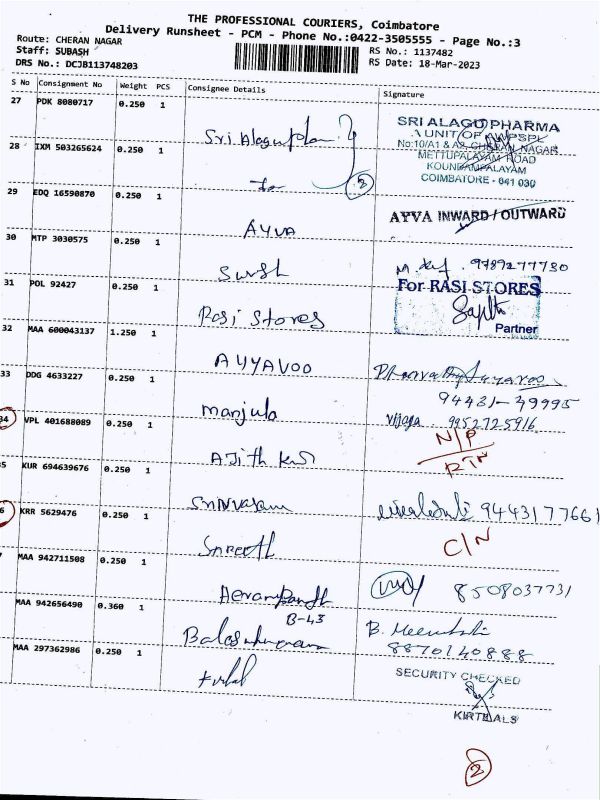 THE PROFESSIONAL COURIERS, Coimbatore
Delivery Runsheet - PCM - Phone No.:0422-3505555 - Page No.:3
Route: CHERAN NAGAR
Staff: SUBASH
DRS No.: DCJB113748203
RS No.: 1137482
RS Date: 18-Mar-2023
S No Consignment No Weight PCS Consignee Details Signature
27 PDK 8080717 0.250 1
SRI ALAGU PHARMA
A UNIT OF AWPSPL
No:10/A1 & A2, CHERAN NAGAR
METTUPALAYAM ROAD
KOUNDAMPALAYAM
COIMBATORE - 641 030
28 IXM 503265624 0.250 1
2
29 EDQ 16590870 0.250 1 AYVA
AYVA INWARD / OUTWARD
30 MTP 3030575 0.250 1
9789277730
31 POL 92427 0.250 1 Rasi Stores
For RASI STORES
Partner
32 MAA 600043137 1.250 1 AYYAVOO
33 DDG 4633227 0.250 1 Manjula
94431-49995
34 VPL 401688089 0.250 1 Ajith
Vijaya 9952725916
N/P
RTN
5 KUR 694639676 0.250 1 Srinivasan
9443177661
6 KRR 5629476 0.250 1
C/N
MAA 942711508 0.250 1
8508037731
MAA 942656490 0.360 1
B-43
B. Meenakshi
8870140888
MAA 297362986 0.250 1
SECURITY CHECKED
KIRTILALS
2